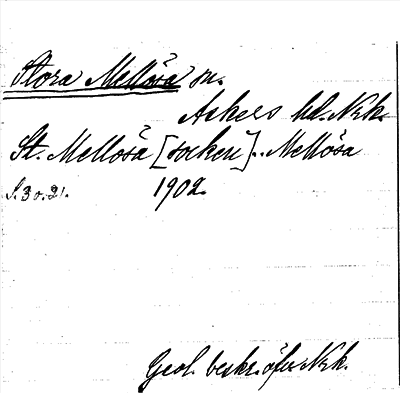 Stora Mellösa sn.
Askers hd. Nrk.
St. Mellösa [socken].. Mellösa
S. 30. 21. 1902.
Geol. beskr. öfver Nrk.